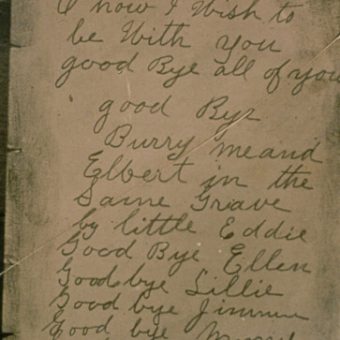 O how I Wish to
be With you
good Bye all of you
good Bye
Burry me and
Elbert in the
Same Grave
by little Eddie
Good Bye Ellen
Good bye Lillie
Good bye Jimmie
Good bye